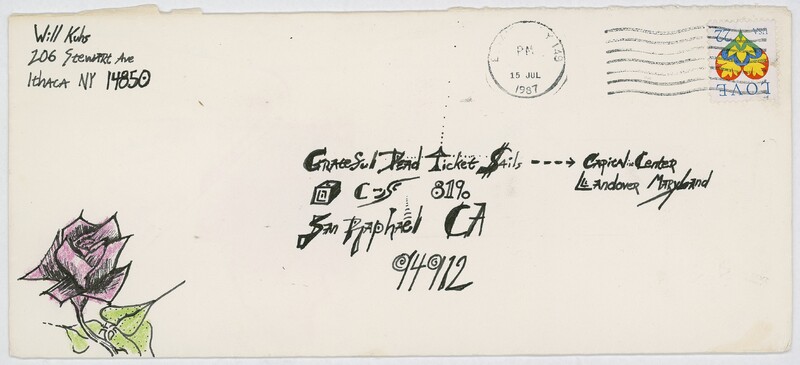 Will Kuhs
206 Stewart Ave
Ithaca NY 14850
PM
15 JUL
1987
USA 22
LOVE
Grateful Dead Ticket Sails ----> Capical Center
Landover Maryland
C-S 8190
San Raphael CA
94912